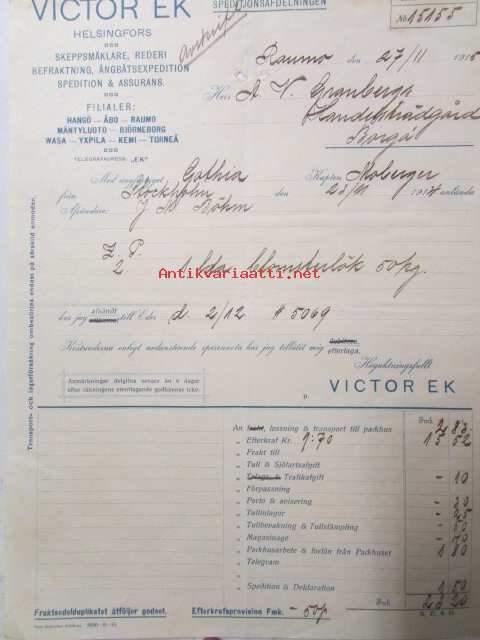 VICTOR EK
HELSINGFORS
SKEPPSMÄKLARE, REDERI
BEFRAKTNING, ÅNGBÅTSEXPEDITION
SPEDITION & ASSURANS.
FILIALER:
HANGÖ — ÅBO — RAUMO
MÄNTYLUOTO — BJÖRNEBORG
WASA — YXPILA — KEMI — TORNEÅ
TELEGRAFADRESS "EK"
SPEDITIONSAFDELNINGEN
Avskrift
No 15155
Raumo den 27/11 1915
Herr A. V. Granberg
Handelsträdgård
Borgå
Med ångfartyget Gothia Kapten Moberger
från Stockholm den 23/11 191 anlända
Afsändare: J. A. Böhm
P.
2 1 låda blomsterlök 50 kg.
Antikvariaatti.net
har jag afsändt till Eder d. 2/12 # 5069
Kostnaderna enligt nedanstående specanota har jag tillåtit mig efterkräfva
Högaktningsfullt
p. VICTOR EK
Anmärkningar delgifna senare än 8 dagar
efter räkningens emottagande godkännas icke.
Transport- och lagerförsäkring ombesörjes endast på särskild anmodan.
Fmk.
An lossning & transport till packhus 2 83
„ Efterkraf Kr. 9:70 13 52
„ Frakt till
„ Tull & Sjöfartsafgift
„ Trafikafgift - 10
„ Förpassning
„ Porto & avisering - 30
„ Tullinlagor - 25
„ Tullberäkning & Tullstämpling - 50
„ Magasinage - 70
„ Packhusarbete & forlön från Packhuset 1 80
„ Telegram
„ Spedition & Deklaration 1 50
Fmk.
Fraktsedelduplikatet åtföljer godset.
Efterkrafsprovision Fmk. - 50 p.
S. E. & O.